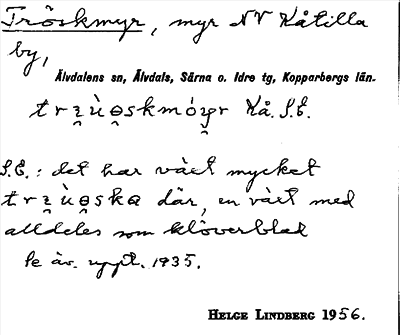 Tröskmyr, myr NV Kåtilla
by,
Älvdalens sn, Älvdals, Särna o. Idre tg, Kopparbergs län.
Kå. S.E.
S.E.: det har växt mycket
där, en växt med
alldeles som klöverblad
Se äv. uppt. 1935.
HELGE LINDBERG 1956.